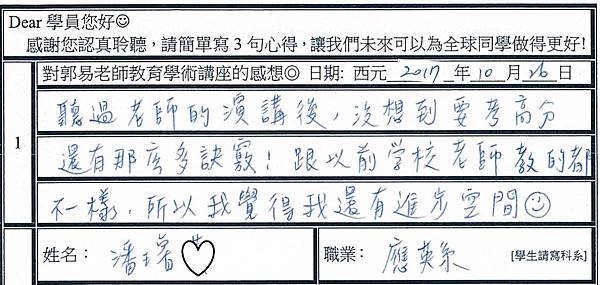 Dear 學員您好☺
感謝您認真聆聽，請簡單寫 3 句心得，讓我們未來可以為全球同學做得更好!
對郭易老師教育學術講座的感想◎ 日期: 西元 2017 年 10 月 26 日
1
聽過老師的演講後，沒想到要考高分
還有那麼多訣竅！跟以前学校老師教的都
不一樣，所以我覺得我還有進步空間☺
姓名： 潘 ♡ 職業： 應英系 [學生請寫科系]